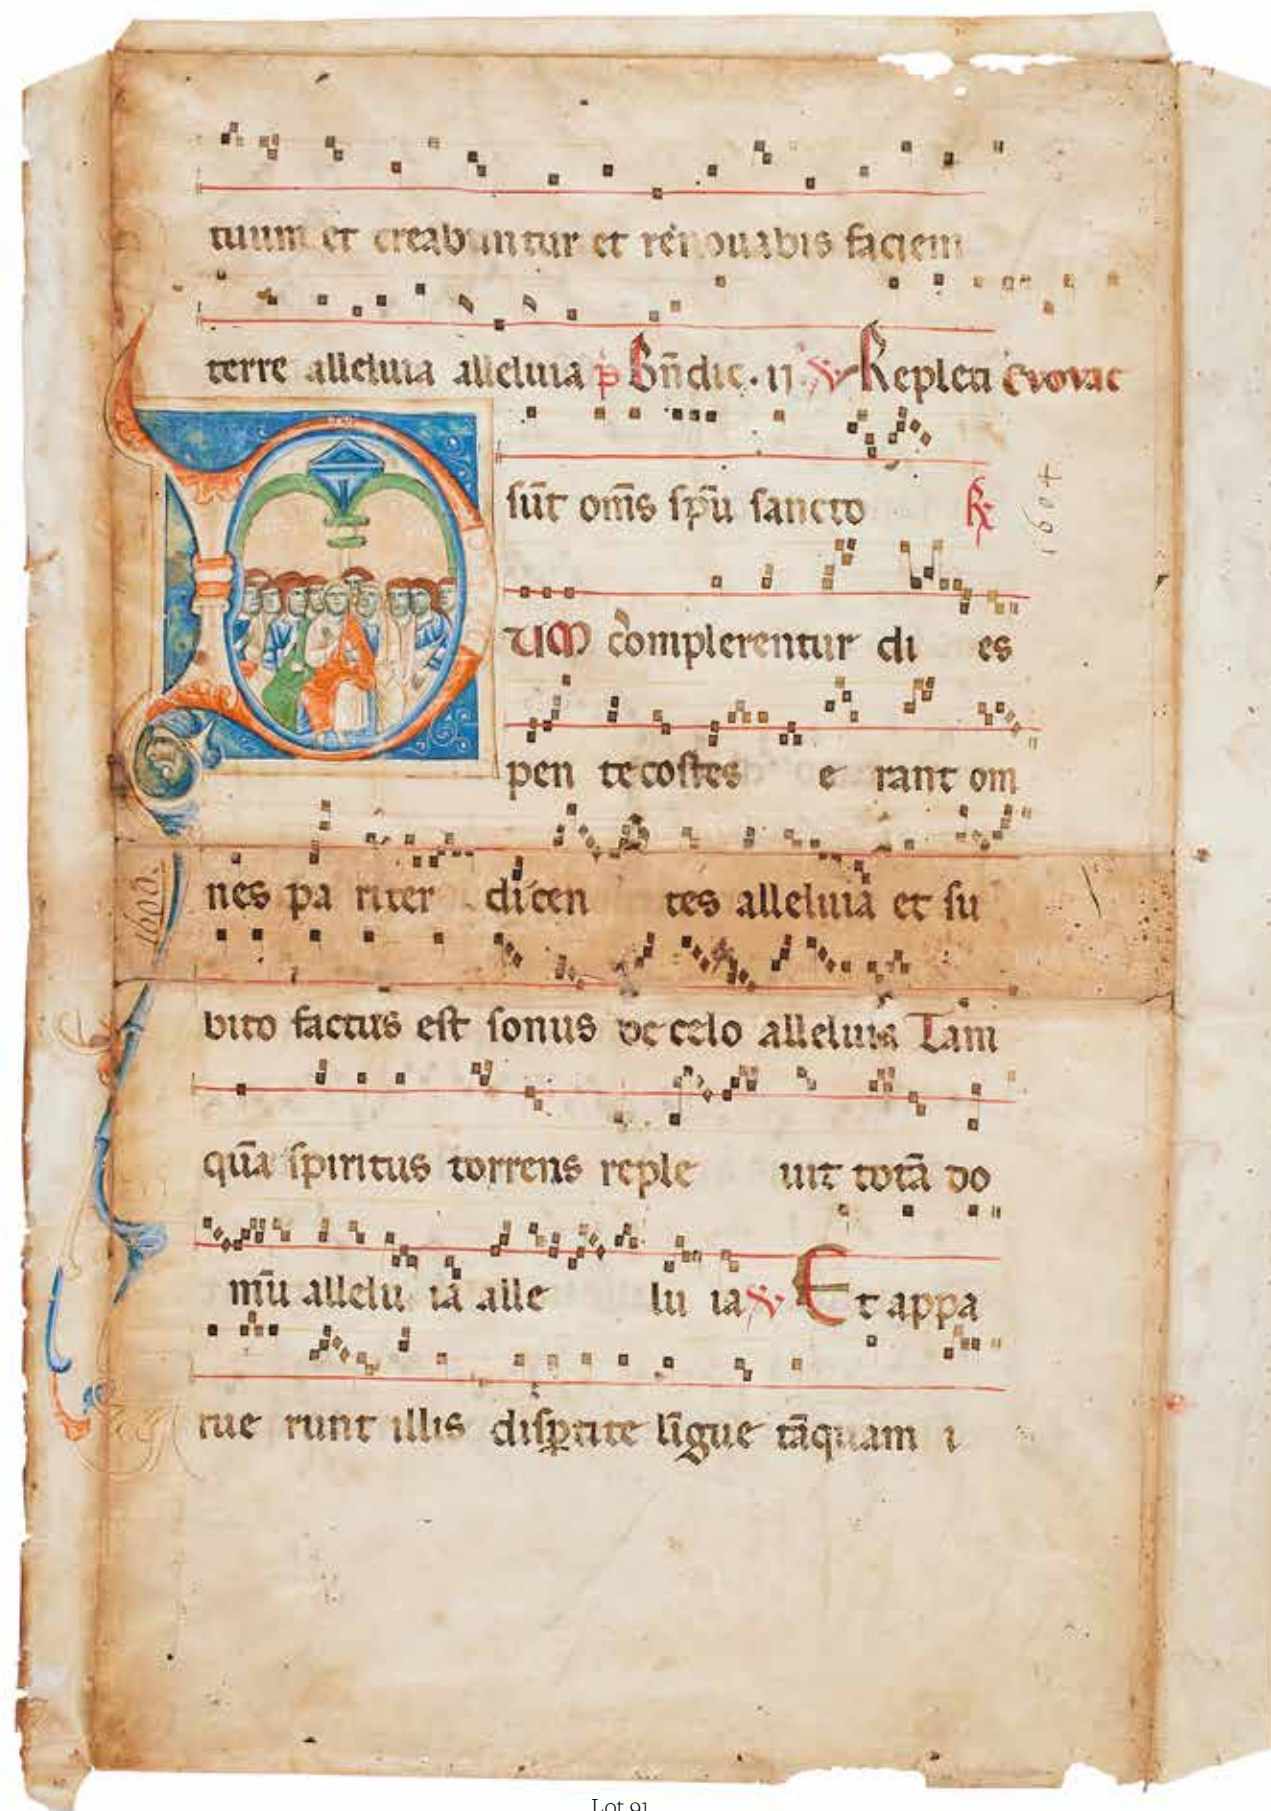 tuum et creabuntur et renouabis faciem
terre alleluia alleluia p̄ Bn̄dic. ij ℣ Repleti Evovae
sūt om̄s sp̄u sancto ℟
1604
DUM complerentur di es
pen tecostes e rant om
nes pa riter dicen tes alleluia et su
1600.
bito factus est sonus de celo alleluia Tam
quā spiritus torrens reple uit totā do
mū allelu ia alle lu ia ℣ Et appa
rue runt illis disꝑtite līgue tāquam i
Lot 91